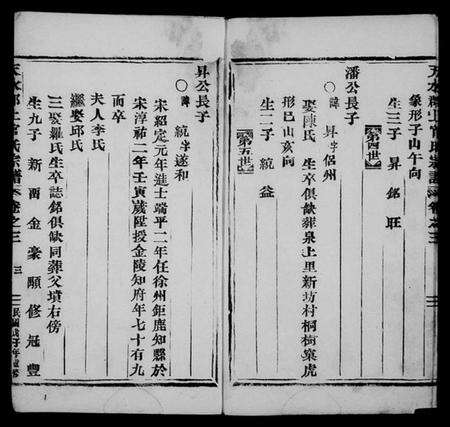 天水郡上官氏宗譜 卷之三
象形子山午向
生三子 昇 銘 旺
第四世
潘公長子
諱昇字侶州
娶陳氏 生卒俱缺葬泉上里新坊村桐樹窠虎
形巳山亥向
生二子 統 益
第五世
昇公長子
諱統字遂和
宋紹定元年進士端平二年任徐州鉅鹿知縣於
宋淳祐二年壬寅歲陞授金陵知府年七十有九
而卒
夫人李氏
繼娶邱氏
三娶羅氏生卒誌銘俱缺同葬父墳右傍
生九子 新 爾 金 豪 顯 修 冠 豐
天水郡上官氏宗譜 卷之三 三 民國戊子年重修